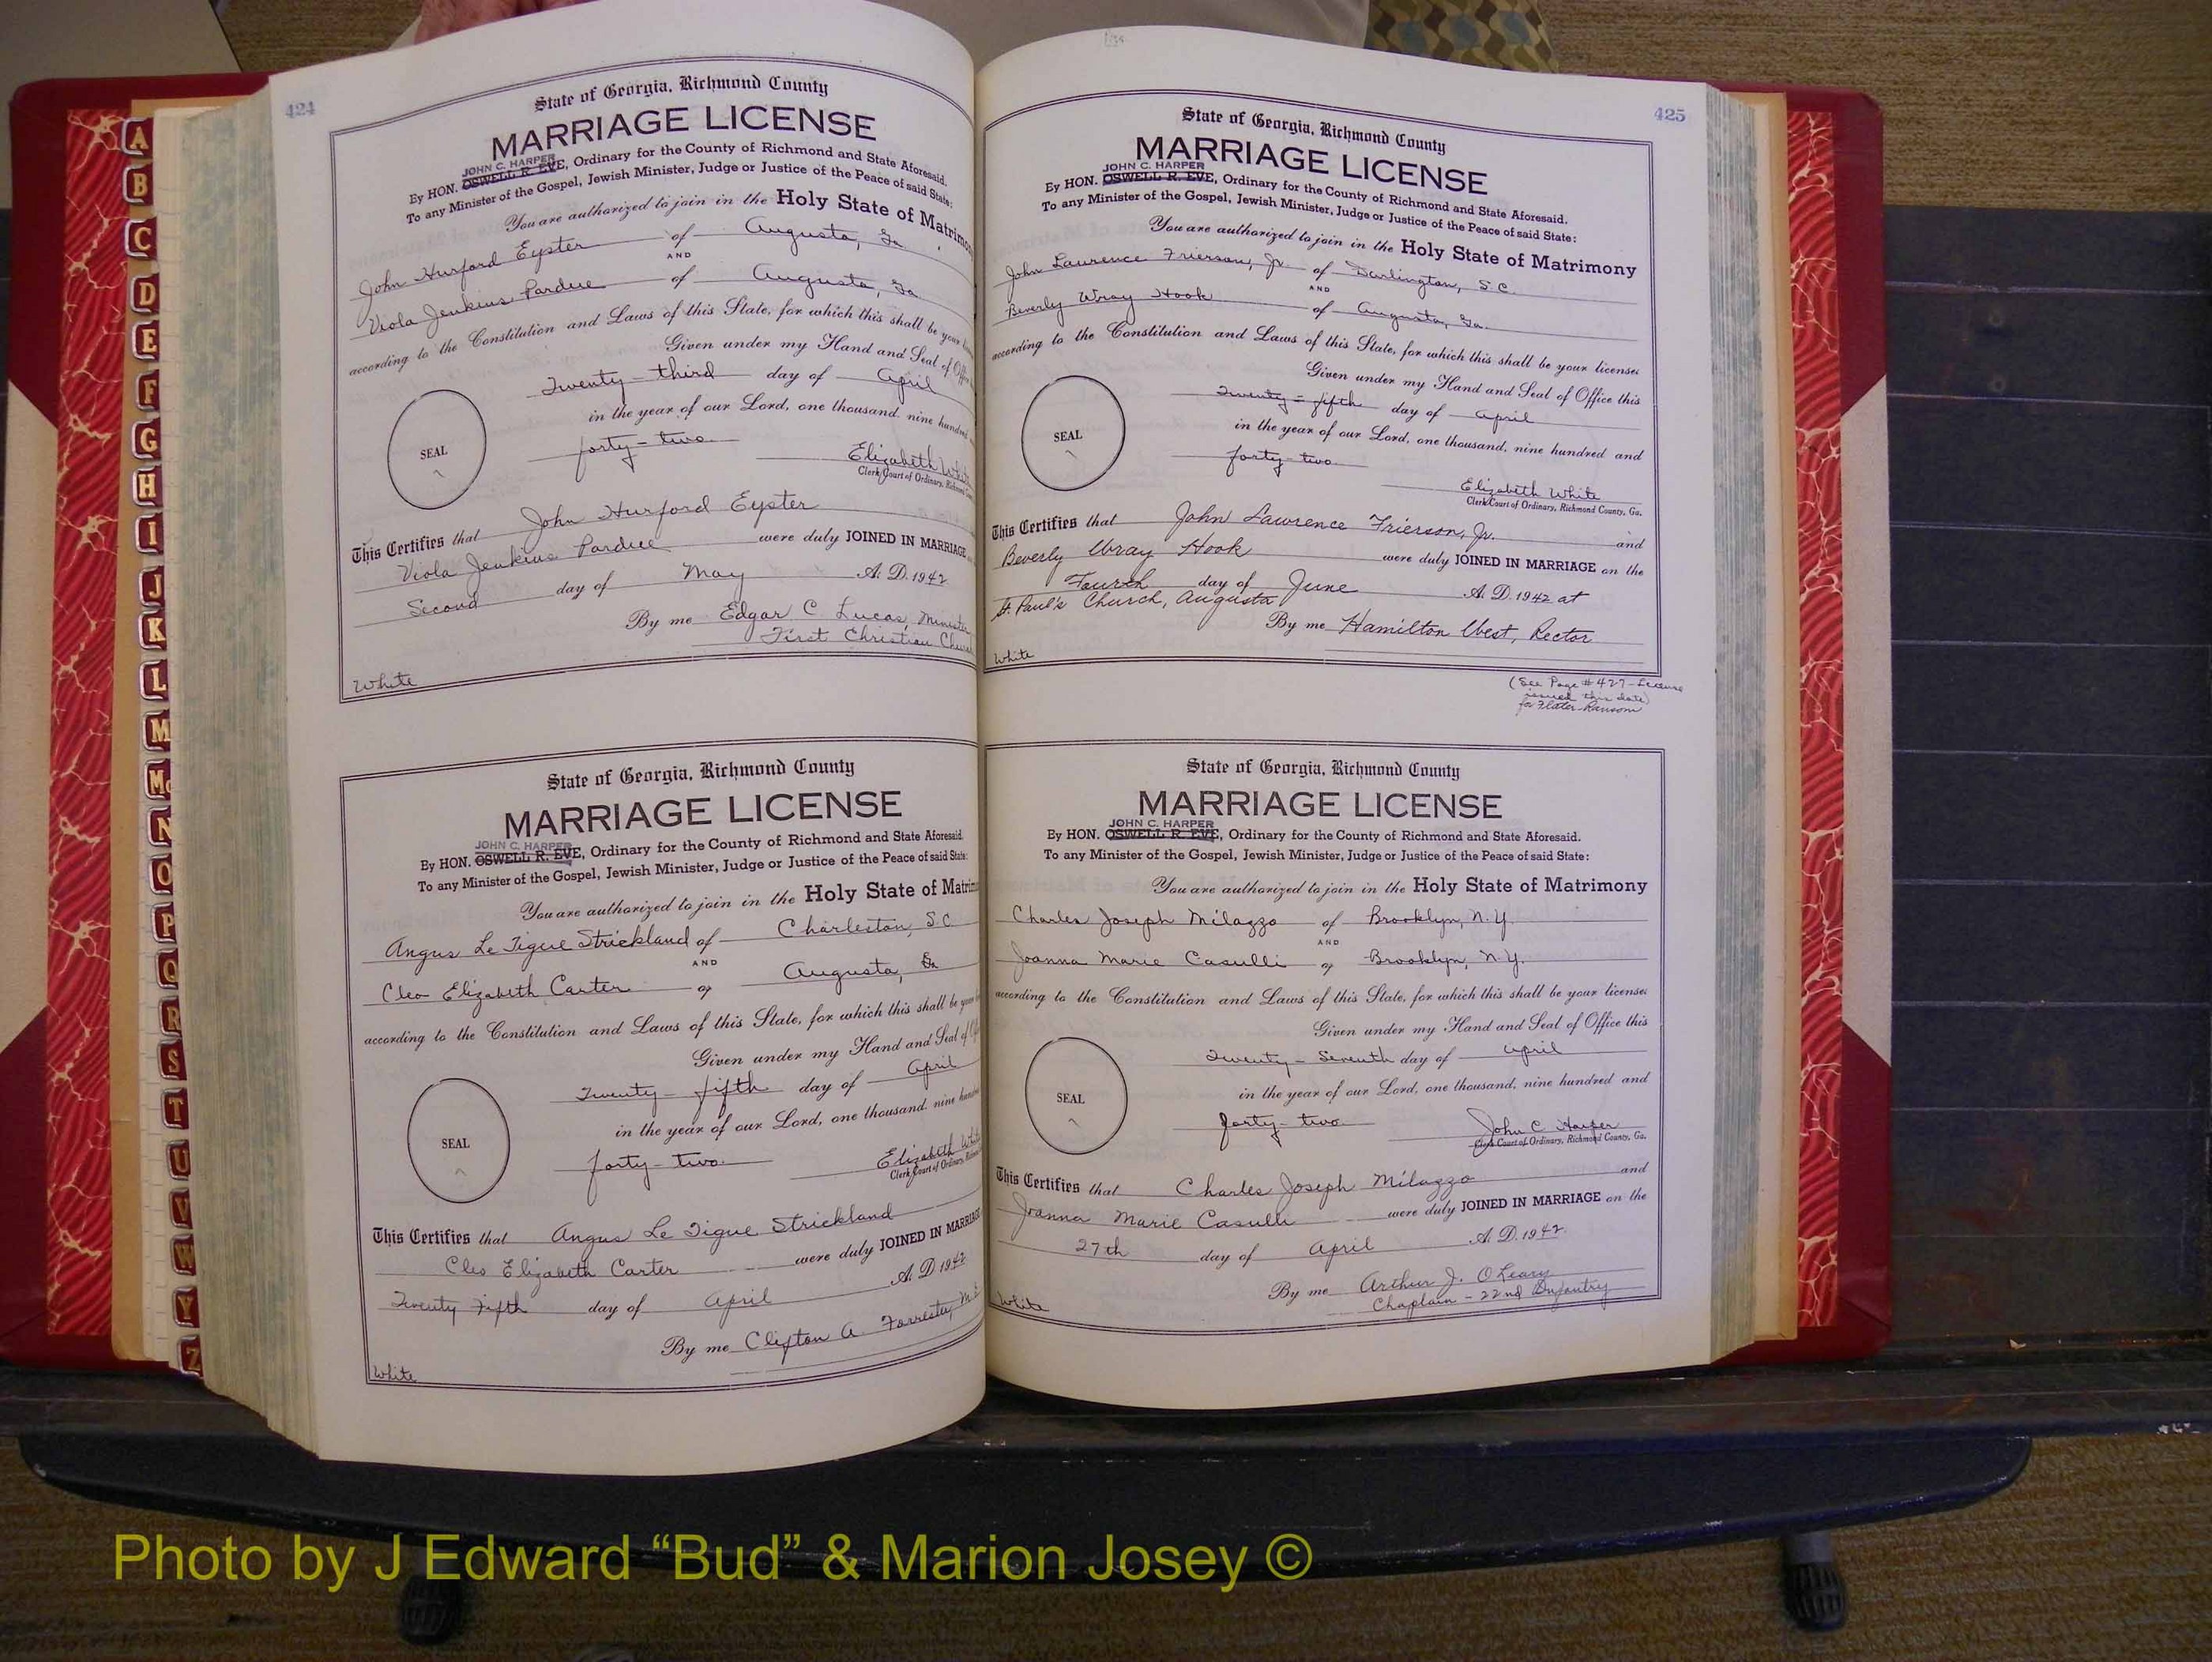 424
State of Georgia, Richmond County
MARRIAGE LICENSE
JOHN C. HARPER
By HON. OSWELL R. EVE, Ordinary for the County of Richmond and State Aforesaid.
To any Minister of the Gospel, Jewish Minister, Judge or Justice of the Peace of said State:
You are authorized to join in the Holy State of Matrimo
John Hurford Eyster of Augusta, Ga.
AND
Viola Jenkins Pardue of Augusta, Ga
according to the Constitution and Laws of this State, for which this shall be your
Given under my Hand and Seal of Offi
Twenty-third day of April
in the year of our Lord, one thousand, nine hundred
forty-two
SEAL
Elizabeth Whi
Clerk Court of Ordinary, Richmond
This Certifies that John Hurford Eyster
Viola Jenkins Pardue were duly JOINED IN MARRIAGE
Second day of May A. D. 1942
By me Edgar C Lucas, Minister
First Christian Chur
White
State of Georgia, Richmond County
MARRIAGE LICENSE
JOHN C. HARPER
By HON. OSWELL R. EVE, Ordinary for the County of Richmond and State Aforesaid.
To any Minister of the Gospel, Jewish Minister, Judge or Justice of the Peace of said State:
You are authorized to join in the Holy State of Matrim
Angus Le Tigue Strickland of Charleston, S C
AND
Cleo Elizabeth Carter of Augusta, Ga
according to the Constitution and Laws of this State, for which this shall be your
Given under my Hand and Seal of
Twenty-fifth day of April
in the year of our Lord, one thousand, nine hund
forty-two.
SEAL
Elizabeth Whi
Clerk Court of Ordinary,
This Certifies that Angus Le Tigue Strickland
Cleo Elizabeth Carter were duly JOINED IN MARRIAGE
Twenty Fifth day of April A. D. 1942
By me Clifton A. Forrester,
White
425
State of Georgia, Richmond County
MARRIAGE LICENSE
JOHN C. HARPER
By HON. OSWELL R. EVE, Ordinary for the County of Richmond and State Aforesaid.
To any Minister of the Gospel, Jewish Minister, Judge or Justice of the Peace of said State:
You are authorized to join in the Holy State of Matrimony
John Laurence Frierson, Jr. of Darlington, S.C.
AND
Beverly Wray Hook of Augusta, Ga.
according to the Constitution and Laws of this State, for which this shall be your license:
Given under my Hand and Seal of Office this
Twenty-fifth day of April
in the year of our Lord, one thousand, nine hundred and
forty-two
SEAL
Elizabeth White
Clerk Court of Ordinary, Richmond County, Ga.
This Certifies that John Lawrence Frierson, Jr. and
Beverly Wray Hook were duly JOINED IN MARRIAGE on the
Fourth day of June A. D. 1942 at
St. Paul's Church, Augusta
By me Hamilton West, Rector
White
(See Page #427-License
issued this date)
for Ransom
State of Georgia, Richmond County
MARRIAGE LICENSE
JOHN C. HARPER
By HON. OSWELL R. EVE, Ordinary for the County of Richmond and State Aforesaid.
To any Minister of the Gospel, Jewish Minister, Judge or Justice of the Peace of said State:
You are authorized to join in the Holy State of Matrimony
Charles Joseph Milazzo of Brooklyn, N.Y.
AND
Joanna Marie Casulli of Brooklyn, N.Y.
according to the Constitution and Laws of this State, for which this shall be your license:
Given under my Hand and Seal of Office this
Twenty-Seventh day of April
in the year of our Lord, one thousand, nine hundred and
forty-two
SEAL
John C Harper
Clerk Court of Ordinary, Richmond County, Ga.
This Certifies that Charles Joseph Milazzo and
Joanna Marie Casulli were duly JOINED IN MARRIAGE on the
27th day of April A. D. 1942
By me Arthur J. O'Leary
Chaplain - 22nd Infantry
White
A
B
C
D
E
F
G
H
I
J
K
L
M
Mc
N
O
P
Q
R
S
T
U
V
W
Y
Z
Photo by J Edward “Bud” & Marion Josey ©